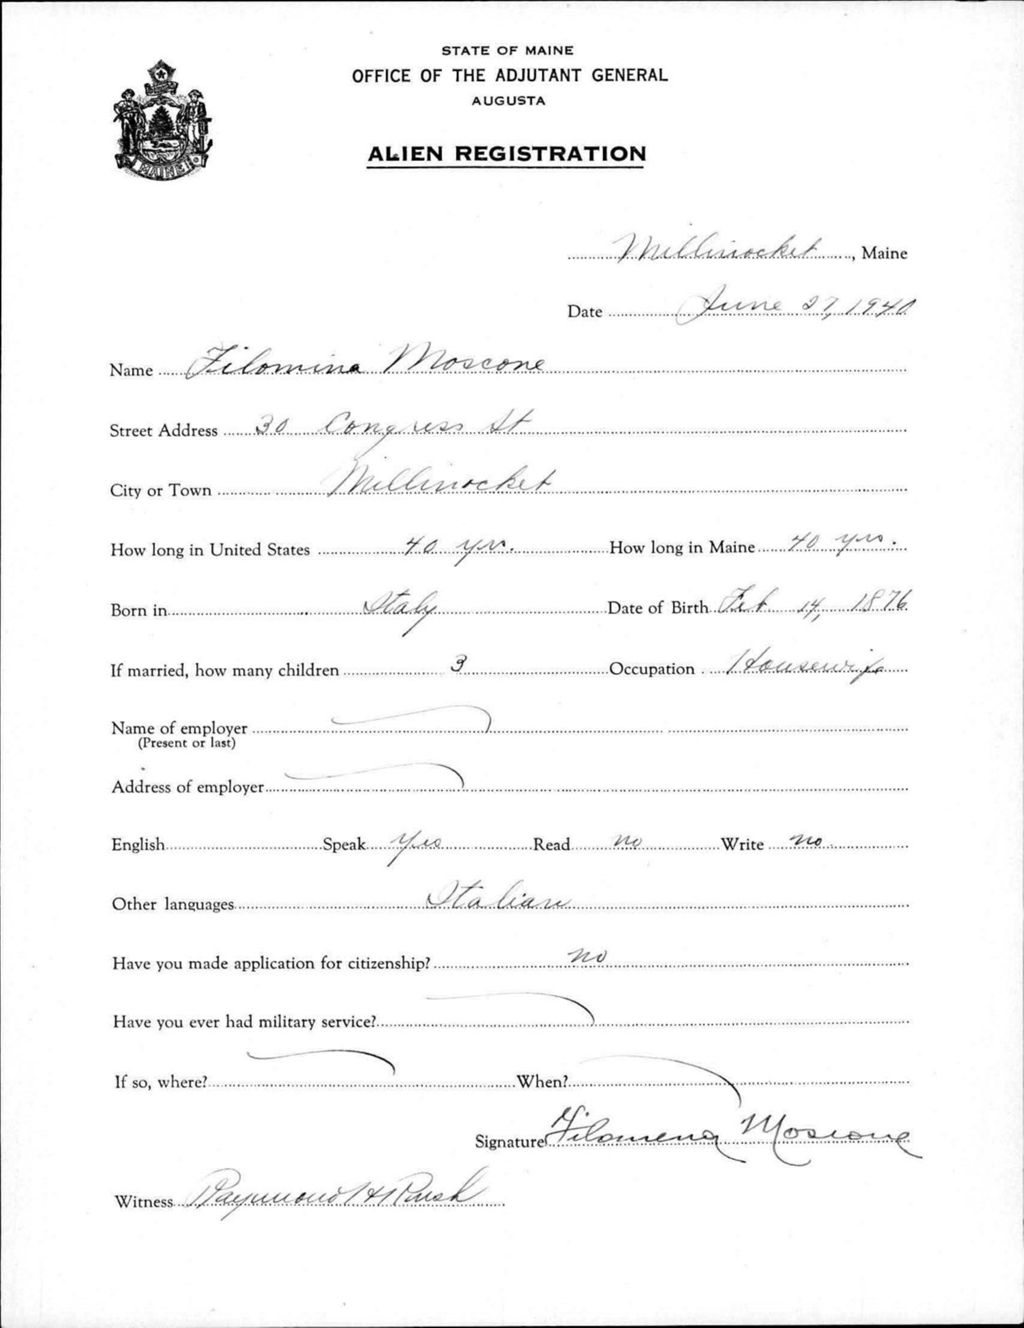 STATE OF MAINE
OFFICE OF THE ADJUTANT GENERAL
AUGUSTA
ALIEN REGISTRATION
MAINE
Millinocket, Maine
Date June 27, 1940
Name Filomina Moscone
Street Address 30 Congress St
City or Town Millinocket
How long in United States 40 yrs. How long in Maine 40 yrs.
Born in Italy Date of Birth Feb 14, 1876
If married, how many children 3 Occupation Housewife
Name of employer
(Present or last)
Address of employer
English Speak Yes Read no Write no
Other languages Italian
Have you made application for citizenship? no
Have you ever had military service?
If so, where? When?
Signature Filomena Moscone
Witness Raymond H Rush